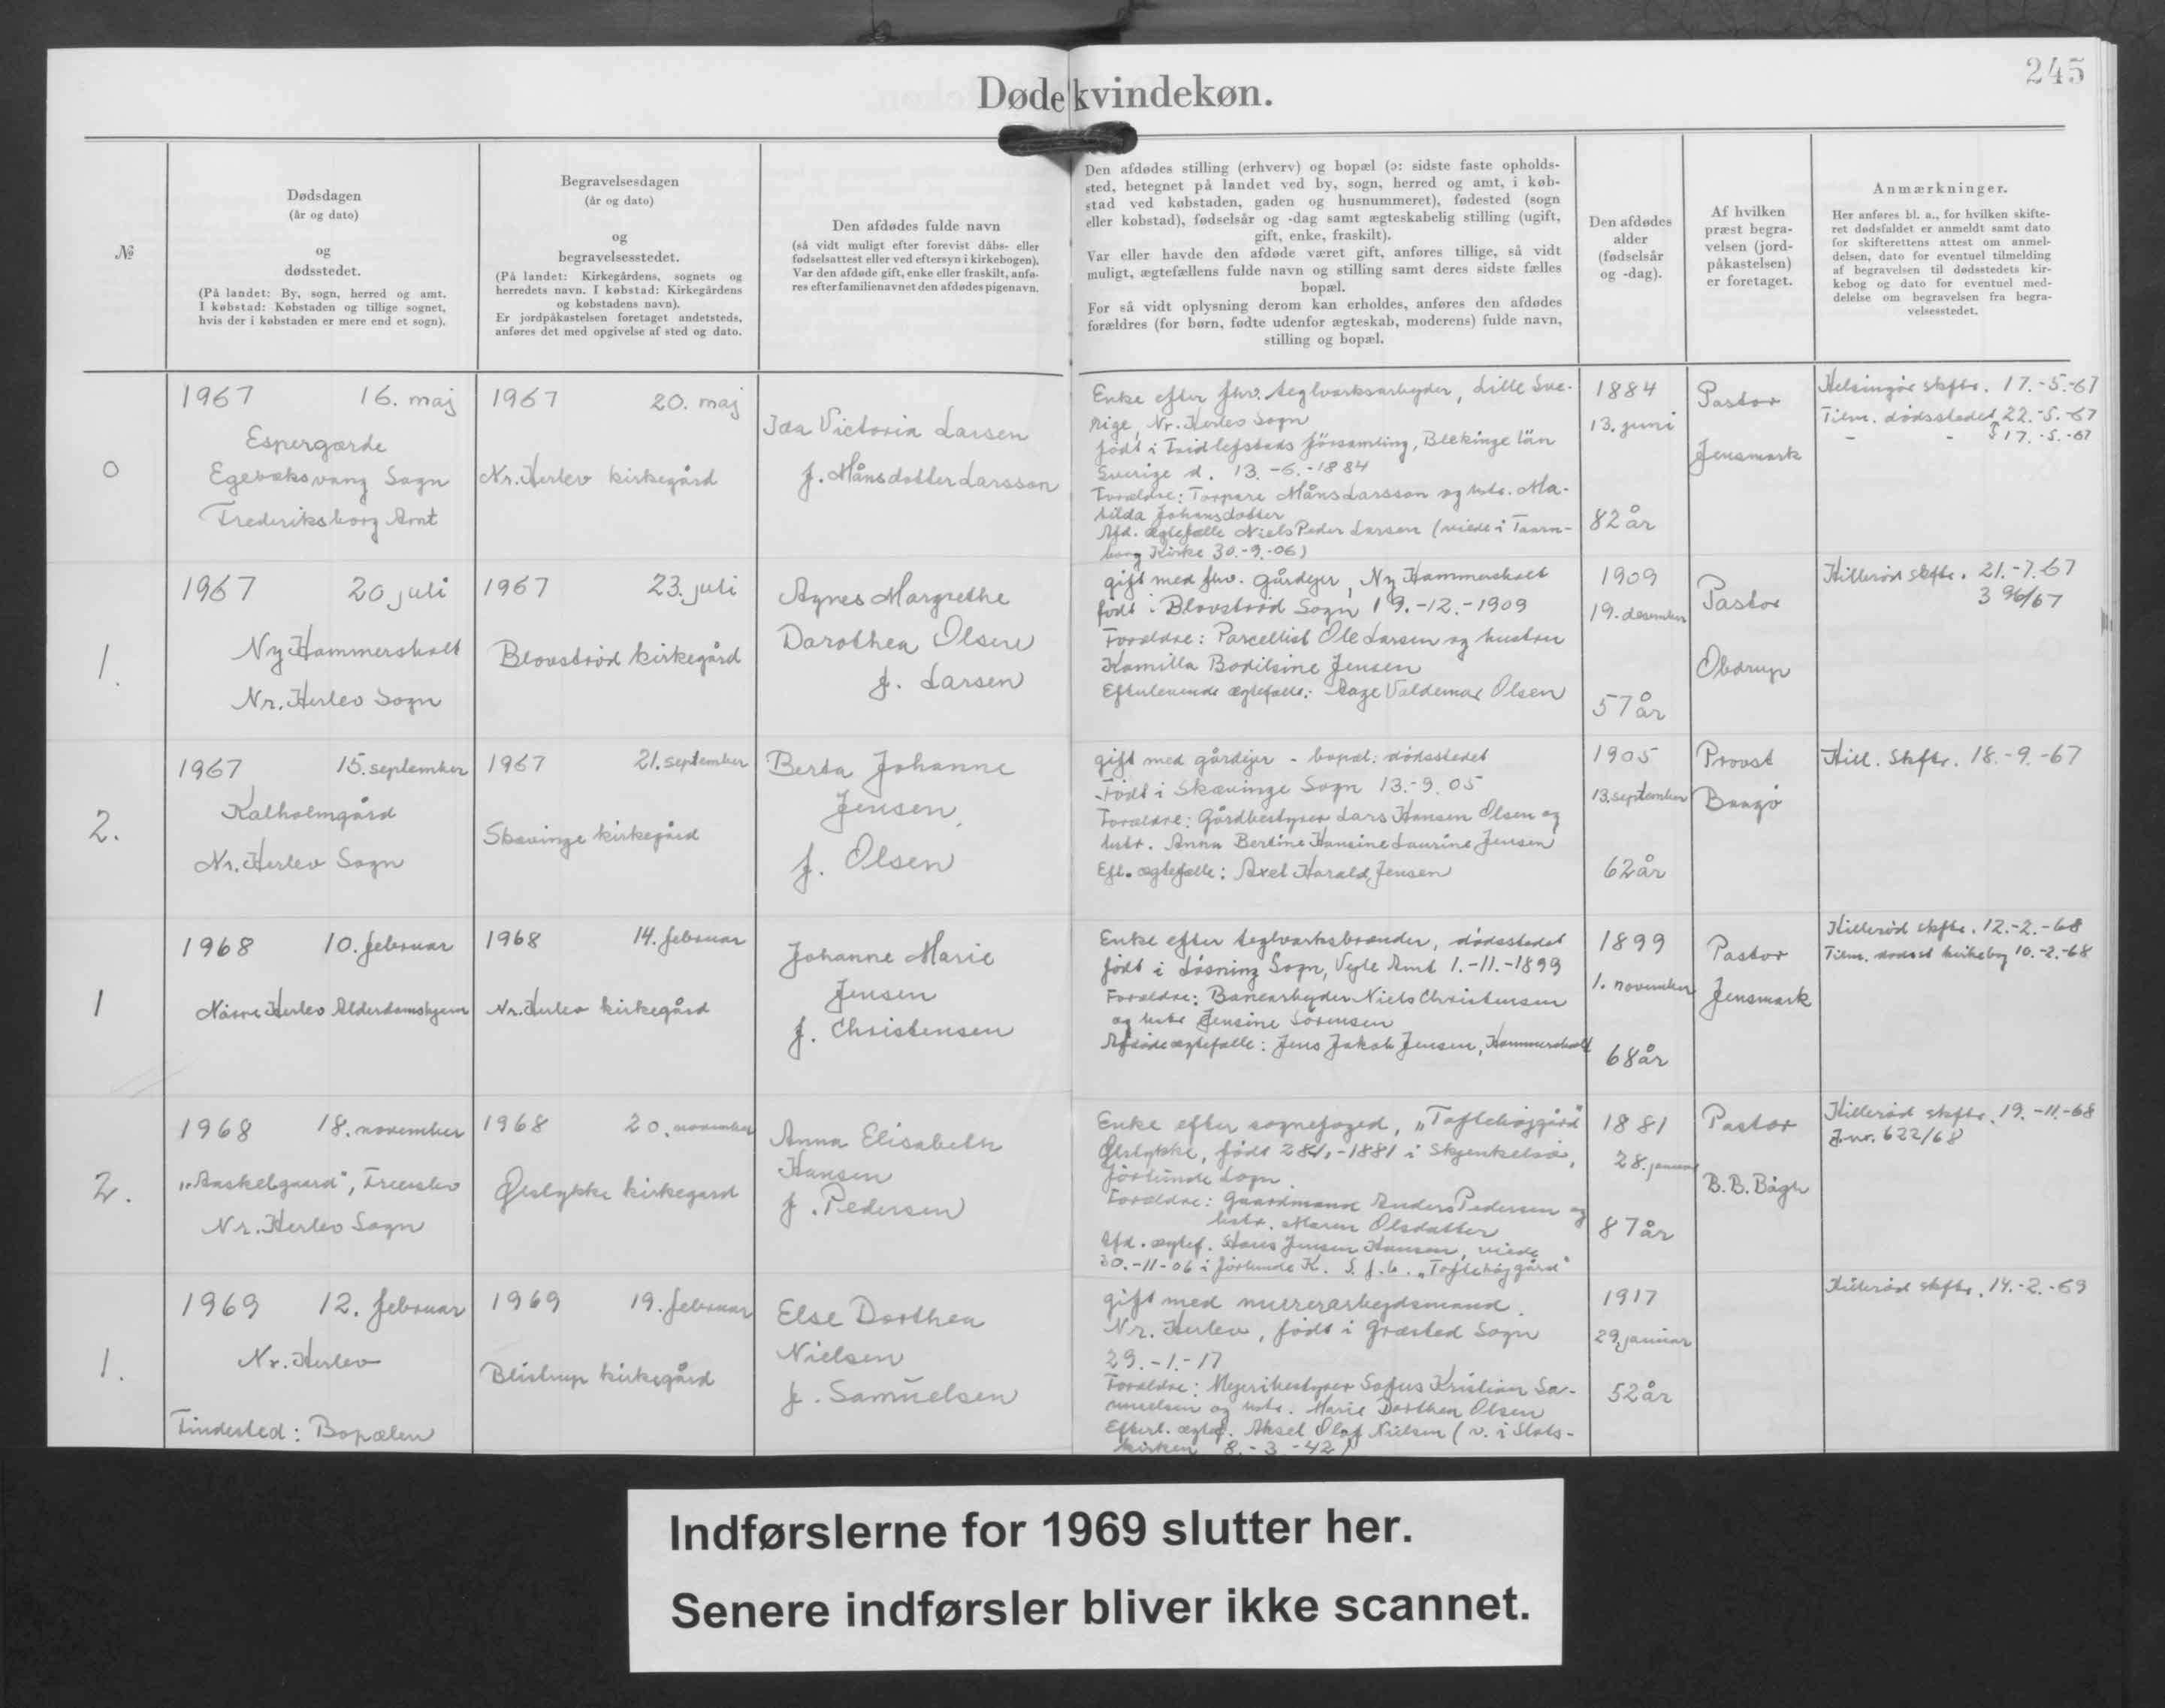 245
Døde kvindekøn.
№
Dødsdagen
(år og dato)
og
dødsstedet.
(På landet: By, sogn, herred og amt.
I købstad: Købstaden og tillige sognet,
hvis der i købstaden er mere end et sogn).
Begravelsesdagen
(år og dato)
og
begravelsesstedet.
(På landet: Kirkegårdens, sognets og
herredets navn. I købstad: Kirkegårdens
og købstadens navn).
Er jordpåkastelsen foretaget andetsteds,
anføres det med opgivelse af sted og dato.
Den afdødes fulde navn
(så vidt muligt efter forevist dåbs- eller
fødselsattest eller ved eftersyn i kirkebogen).
Var den afdøde gift, enke eller fraskilt, anfø-
res efter familienavnet den afdødes pigenavn.
Den afdødes stilling (erhverv) og bopæl (ɔ: sidste faste opholds-
sted, betegnet på landet ved by, sogn, herred og amt, i køb-
stad ved købstaden, gaden og husnummeret), fødested (sogn
eller købstad), fødselsår og -dag samt ægteskabelig stilling (ugift,
gift, enke, fraskilt).
Var eller havde den afdøde været gift, anføres tillige, så vidt
muligt, ægtefællens fulde navn og stilling samt deres sidste fælles
bopæl.
For så vidt oplysning derom kan erholdes, anføres den afdødes
forældres (for børn, fødte udenfor ægteskab, moderens) fulde navn,
stilling og bopæl.
Den afdødes
alder
(fødselsår
og -dag).
Af hvilken
præst begra-
velsen (jord-
påkastelsen)
er foretaget.
Anmærkninger.
Her anføres bl. a., for hvilken skifte-
ret dødsfaldet er anmeldt samt dato
for skifterettens attest om anmel-
delsen, dato for eventuel tilmelding
af begravelsen til dødsstedets kir-
kebog og dato for eventuel med-
delelse om begravelsen fra begra-
velsesstedet.
0
1967 16. maj
Espergærde
Egebæksvang Sogn
Frederiksborg Amt
1967 20. maj
Nr. Herlev kirkegård
Ida Victoria Larsen
f. Månsdotter Larsson
Enke efter fhv. teglværksarbejder, Lille Sve-
rige, Nr. Herlev Sogn
født i Tvidlefstads församling, Blekinge län
Sverige d. 13.-6.-1884
Forældre: Torpare Måns Larsson og hstr. Ma-
tilda Johansdotter
Afd. ægtefælle Niels Peder Larsen (viede i Taarn-
borg Kirke 30.-9.-06)
1884
13. juni
82 år
Pastor
Jensmark
Helsingør skftr. 17.-5.-67
Tilm. dødsstedet 22.-5.-67
- - 17.-5.-67
1.
1967 20 juli
Ny Hammersholt
Nr. Herlev Sogn
1967 23. juli
Blovstrød kirkegård
Agnes Margrethe
Dorothea Olsen
f. Larsen
gift med fhv. gårdejer, Ny Hammersholt
født i Blovstrød Sogn 19.-12.-1909
Forældre: Parcellist Ole Larsen og hustru
Kamilla Bodilsine Jensen
Efterlevende ægtefælle: Aage Valdemar Olsen
1909
19. december
57 år
Pastor
Obdrup
Hillerød skftr. 21.-7.-67
396/67
2.
1967 15. september
Kalholmgård
Nr. Herlev Sogn
1967 21. september
Skævinge kirkegård
Berta Johanne
Jensen,
f. Olsen
gift med gårdejer - bopæl: dødsstedet
Født i Skævinge Sogn 13.-9.05
Forældre: Gårdbestyrer Lars Hansen Olsen og
hstr. Anna Bertine Hansine Laurine Jensen
Eft. ægtefælle: Axel Harald Jensen
1905
13. september
62 år
Provst
Bangø
Hill. Skftr. 18.-9.-67
1
1968 10. februar
Nørre Herlev Alderdomshjem
1968 14. februar
Nr. Herlev kirkegård
Johanne Marie
Jensen
f. Christensen
Enke efter teglværksbrænder, dødsstedet
født i Løsning Sogn, Vejle Amt 1.-11.-1899
Forældre: Banearbejder Niels Christensen
og hstr Jensine Sørensen
Afdøde ægtefælle: Jens Jakob Jensen, Hammersholt
1899
1. november
68 år
Pastor
Jensmark
Hillerød skftr. 12.-2.-68
Tilm. dødsst kirkebog 10.-2.-68
2.
1968 18. november
"Baskelgaard", Freerslev
Nr. Herlev Sogn
1968 20. november
Ølstykke kirkegård
Anna Elisabeth
Hansen
f. Pedersen
Enke efter sognefoged, "Toftehøjgård"
Ølstykke, født 28.1.-1881 i Skjenkelsø,
Jørlunde Sogn.
Forældre: Gaardmand Anders Pedersen og
hstr. Maren Olsdatter
Afd. ægtef. Hans Jensen Hansen, viede
30.-11-06 i Jørlunde K. S. f. b. "Toftehøjgård"
1881
28. januar
87 år
Pastor
B.B. Bøgh
Hillerød skftr. 19.-11.-68
J.nr. 622/68
1.
1969 12. februar
Nr. Herlev
Findested: Bopælen
1969 19. februar
Blistrup kirkegård
Else Dorthea
Nielsen
f. Samuelsen
gift med murerarbejdsmand.
Nr. Herlev, født i Græsted Sogn
29.-1.-17
Forældre: Mejeribestyrer Sofus Kristian Sa-
muelsen og hstr. Marie Dorthea Olsen
Efterl. ægtef. Aksel Olaf Nielsen (v. i Slots-
kirken 8.-3-42)
1917
29. januar
52 år
Hillerød skftr. 14.-2.-69
Indførslerne for 1969 slutter her.
Senere indførsler bliver ikke scannet.